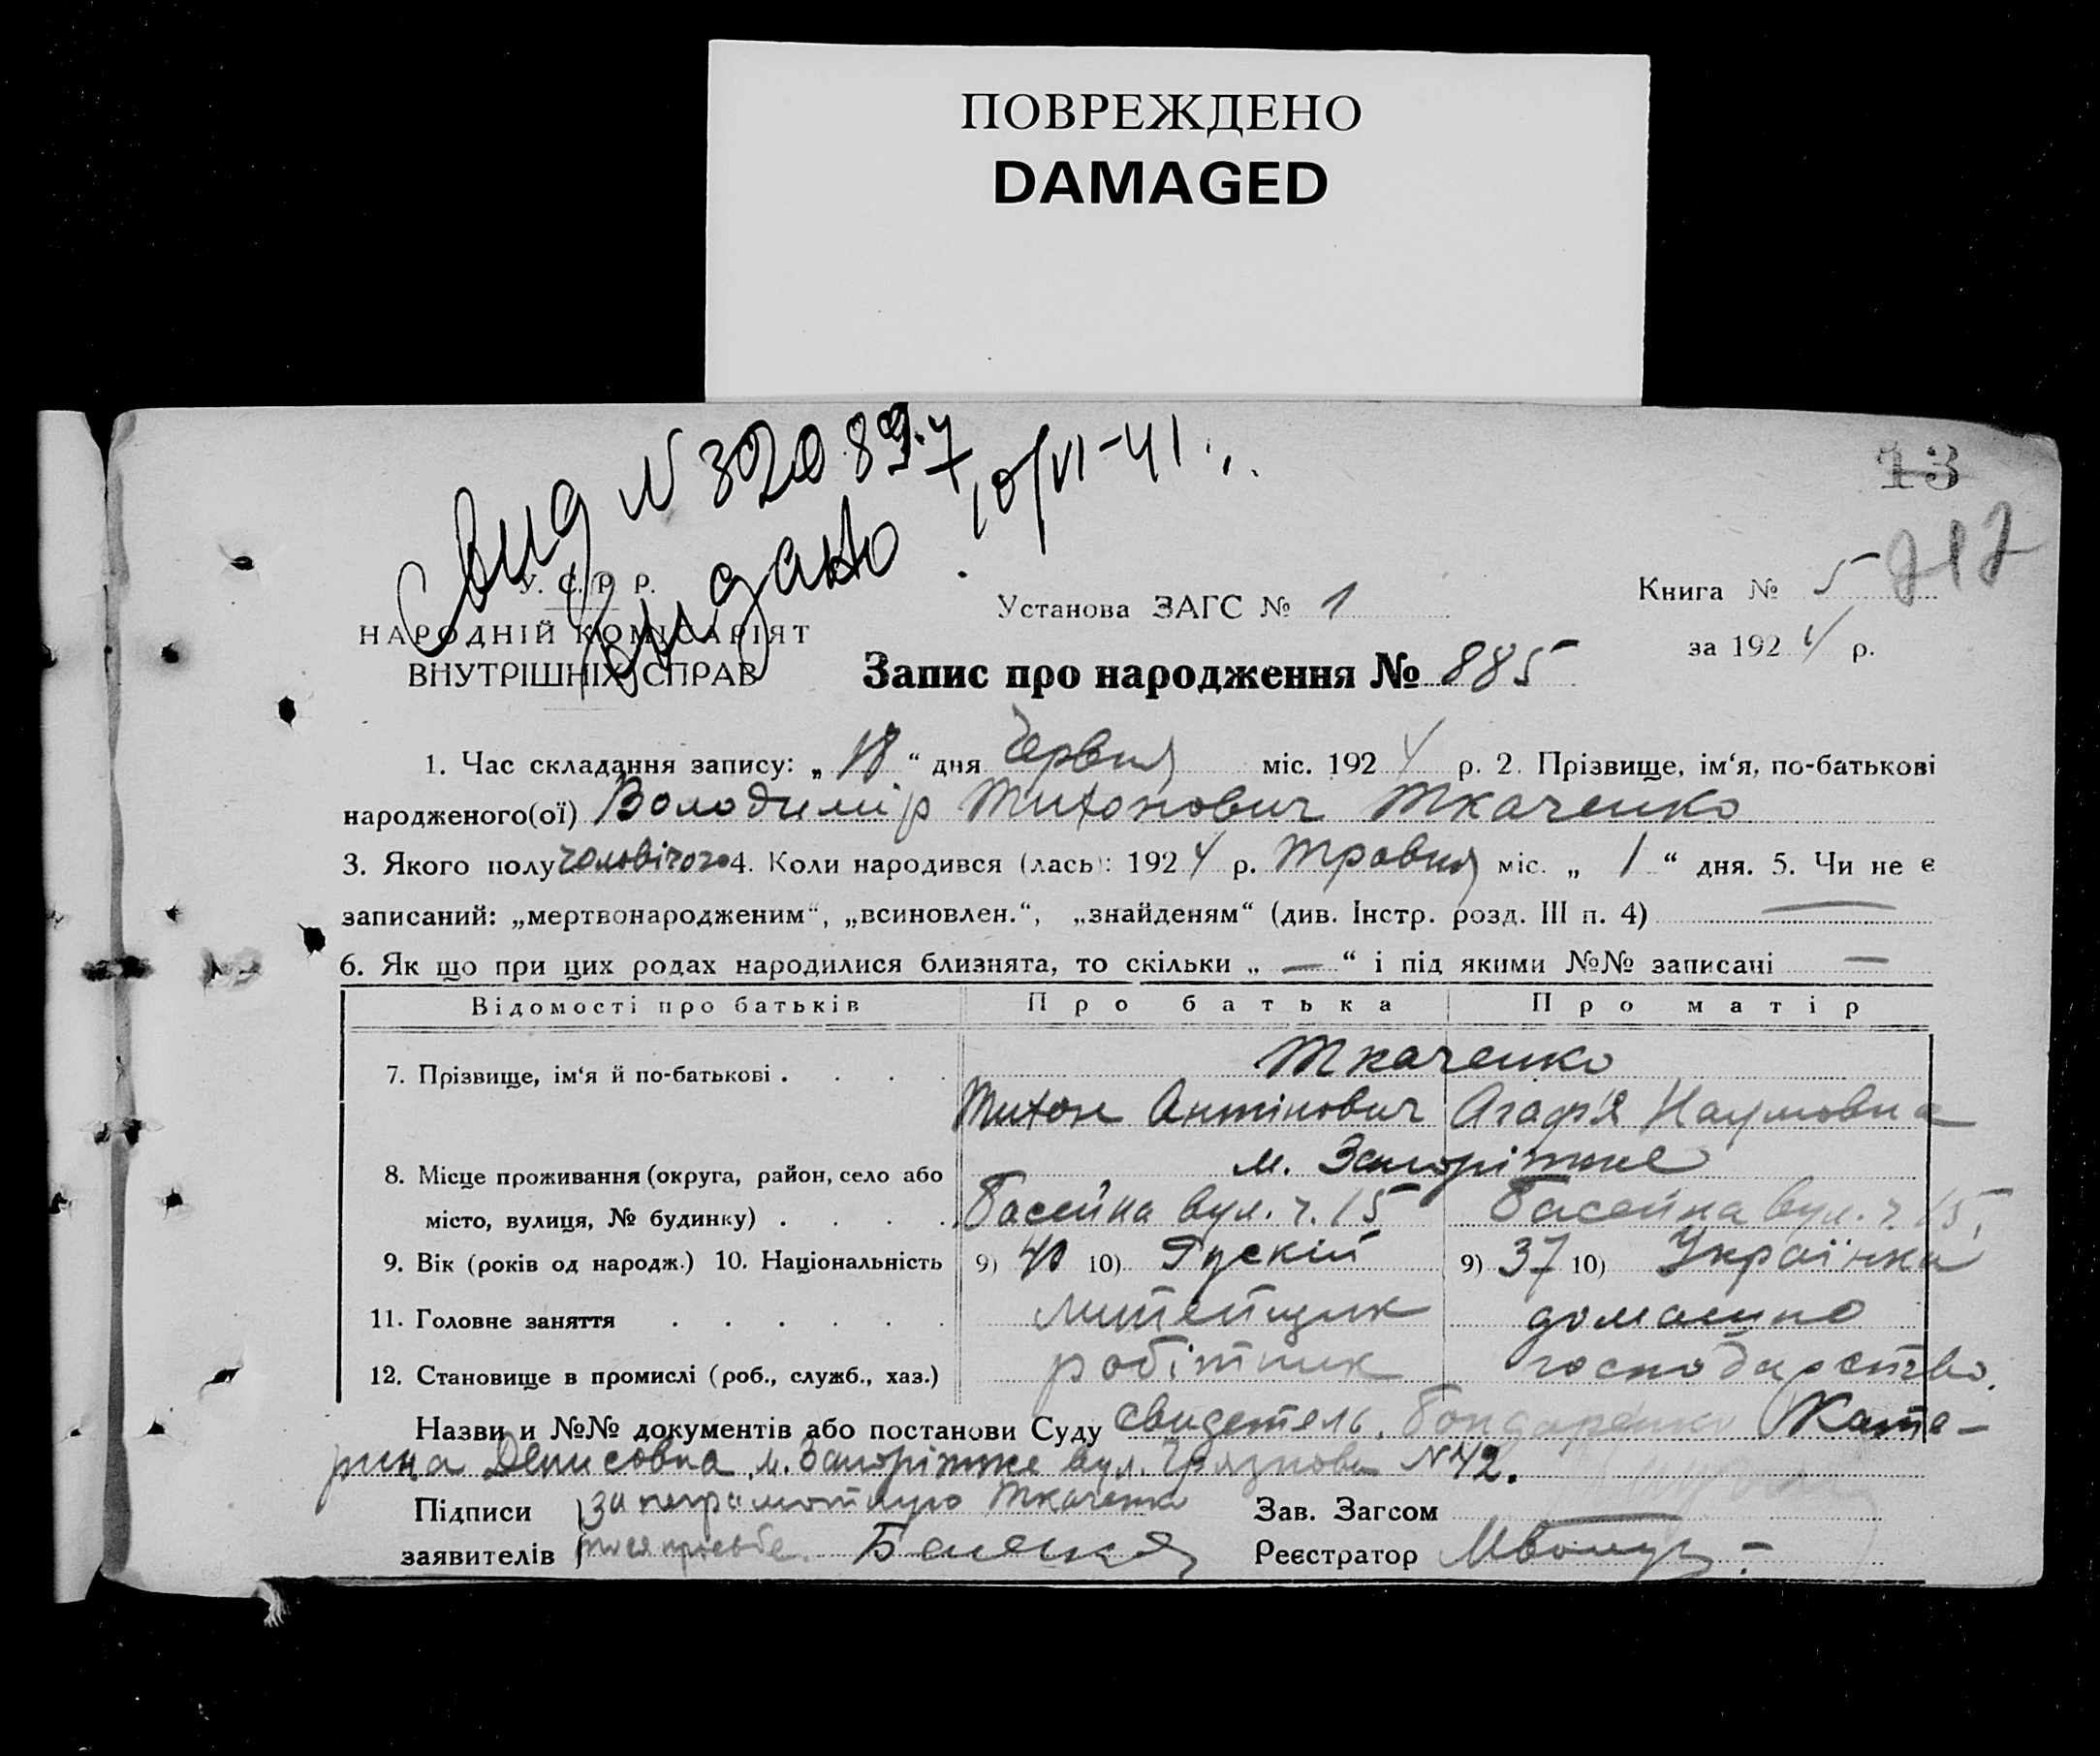 ПОВРЕЖДЕНО
DAMAGED
Свид N 320897
Видано 10/VI-41
13
217
У. С. Р. Р.
НАРОДНІЙ КОМІСАРІЯТ
ВНУТРІШНІХ СПРАВ
Установа ЗАГС № 1
Книга № 5
за 1924 р.
Запис про народження № 885
1. Час складання запису: „18“ дня Червня міс. 1924 р. 2. Прізвище, ім‘я, по-батькові
народженого(ої) Володимір Тихонович Ткаченко
3. Якого полу чоловічого 4. Коли народився (лась): 1924 р. Травня міс. „1“ дня. 5. Чи не є
записаний: „мертвонародженим“, „всиновлен.“, „знайденям“ (див. Інстр. розд. III п. 4) —
6. Як що при цих родах народилися близнята, то скільки „—“ і під якими №№ записані —
Відомості про батьків Про батька Про матір
7. Прізвище, ім‘я й по-батькові . . . . Ткаченко
Тихон Антінович Агафія Наумовна
8. Місце проживання (округа, район, село або м. Запоріжже
місто, вулиця, № будинку) . . . . Басейна вул. ч. 15 Басейна вул. ч. 15.
9. Вік (років од народж.) 10. Національність 9) 40 10) Руский 9) 37 10) Українка
11. Головне заняття . . . . . . литейщик домашнє
12. Становище в промислі (роб., служб., хаз.) робітник господарство.
Назви и №№ документів або постанови Суду Свидетель. Бондаренко Кате-
рина Денисовна м. Запоріжже вул. Грязнова N 42.
Підписи за неграмотную Ткаченко
заявителів
Зав. Загсом
Реєстратор